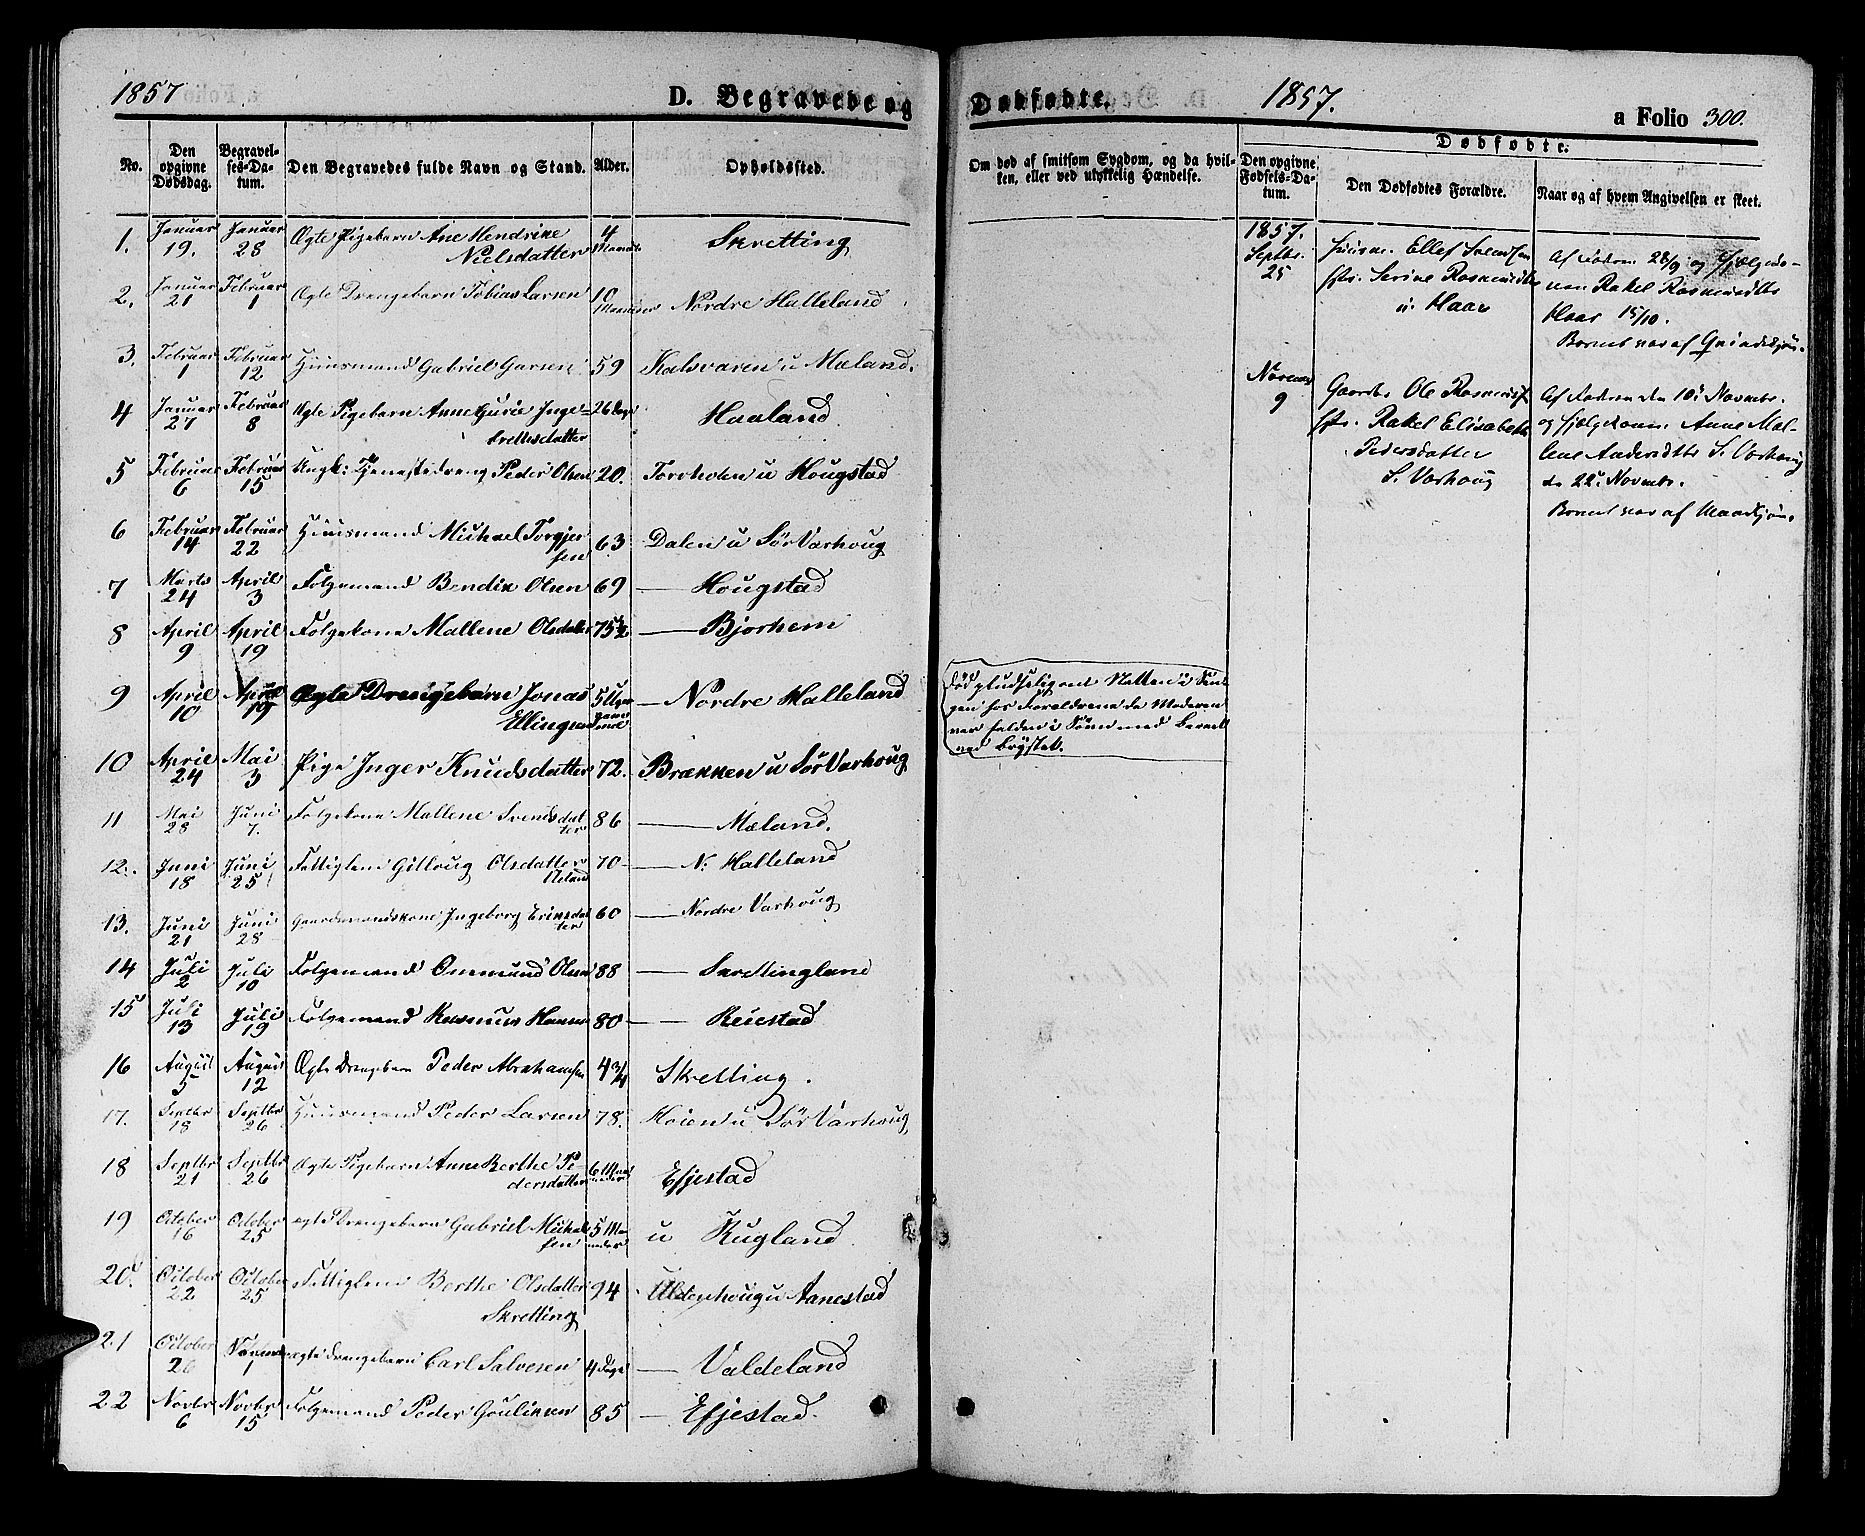 1857
D. Begravede og
No.
Den opgivne Dødsdag.
Begravelses-Datum.
Den Begravedes fulde Navn og Stand.
Alder.
Opholdssted.
1. Januar 19. Januar 28 Ægte Pigebarn Ane Hendrine Nielsdatter 4 Skretting
2. Januar 21 Februar 1 Ægte Drengebarn Tobias Larsen 10 Maaneder Nordre Halleland
3. Februar 1 Februar 12 Huusmand Gabriel 59 Kalvaren u Mæland.
4 Januar 27 Februar 8 Ægte Pigebarn Anne Gurie Ingebrettsdatter 26 Dage Haaland
5 Februar 6 Februar 15 Ungk: Tjenestedreng Peder Olsen 20. Torvholen u Hougstad
6 Februar 14 Februar 22 Huusmand Michael Torgjersen 63 Dalen u Sør Varhoug
7 Marts 24 April 3 Folgemand Bendix Olsen 69 — Hougstad
8 April 9 April 19 Folgekone Mallene Olsdatter 75½ — Bjorhem
9 April 10 April 19 Ægte Drengebarn Jonas Ellingsen 5 Uger — Nordre Halleland
10 April 24 Mai 3 Pige Inger Knudsdatter 72. Brækken u Sør Varhoug
11 Mai 28 Juni 7. Folgekone Mallene Svendsdatter 86 — Mæland.
12. Juni 18 Juni 25 Fattiglem Gitloug Olsdatter 70 — N. Halleland
13. Juni 21 Juni 28 Gaardmandskone Ingeborg Eriksdatter 60 — Nordre Varhoug
14 Juli 2 Juli 10 Folgemand Ommund Olsen 88 — Skrettingland
15 Juli 13 Juli 19 Folgemand Rasmus Hansen 80 — Reiestad
16 August 5 August 12 Ægte Drengebarn Peder Abrahamsen 4¾ Skretting.
17. Septbr 18 Septbr 26 Huusmand Peder Larsen 78. Hoien u Sør Varhoug
18 Septbr 21 Septbr 26 Ægte Pigebarn Anne Berthe Pedersdatter 6 Maaneder Efjestad
19 October 16 October 25 ægte Drengebarn Gabriel Michaelsen 5 Maaneder u Kugland
20. October 22 October 25 Fattiglem Berthe Olsdatter Skretting 94 Uldenhoug u Aanestad
21 October November 1 ægte Drengebarn Carl Salvesen 4 Dage — Valdeland
22 Novbr 6 Novbr 15 Folgemand Peder Goulixen 85 — Efjestad.
Dødfødte.
1857.
a Folio 300.
Om død af smitsom Sygdom, og da hvilken, eller ved ulykkelig Hændelse.
Dødfødte.
Den opgivne Fødsels-Datum.
Den Dødfødtes Forældre.
Naar og af hvem Angivelsen er skeet.
1857. Septbr. 25
Huusm. Ellef Svendsen
Serine Rasmusdtr
u. Haar
Af Faderen 28/9 og
Rakel Rasmusdtr
Haar 15/10.
Barnet var af Qvindekjøn.
Novem 9
Gaardbr. Ole Rasmussen
Rakel Elisabeth
Pedersdatter
S. Varhoug
Af Faderen den 10. Novembr.
og Hjælpekonen Anne Malene S. Varhoug
d. 22. Novembr.
Barnet var af Mandkjøn.
Død pludselig om Natten i Sengen hos Forældrene da Moderen
var falden i Søvn med Barnet
ved Brystet.